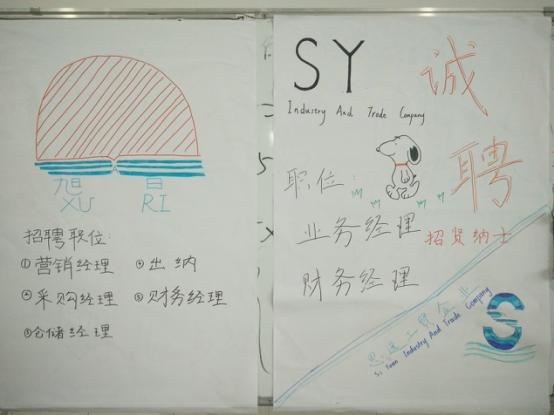 旭日
XU RI
招聘职位:
①营销经理 ④出纳
②采购经理 ⑤财务经理
③仓储经理
SY
Industry And Trade Company
诚聘
职位:
业务经理
财务经理
招贤纳士
思远工贸企业
Si Yuan Industry And Trade Company
S